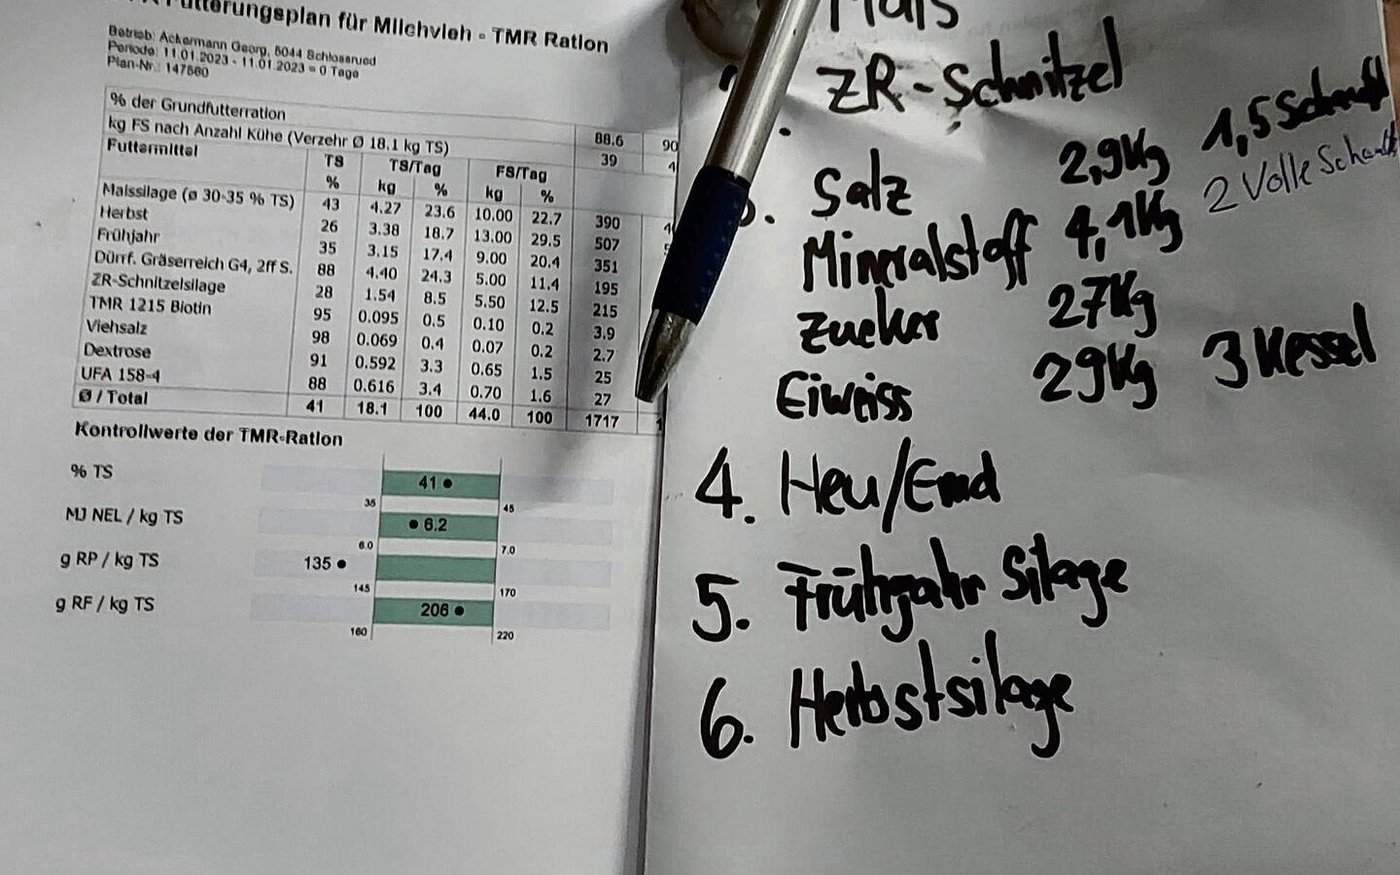 Fütterungsplan für Milchvieh - TMR Ration
Betrieb: Ackermann Georg, 5044 Schlossrued
Periode: 11.01.2023 - 11.01.2023 = 0 Tage
Plan-Nr.: 147560
% der Grundfutterration 88.6 90
kg FS nach Anzahl Kühe (Verzehr Ø 18.1 kg TS) 39
Futtermittel TS TS/Tag FS/Tag
% kg % kg %
Maissilage (ø 30-35 % TS) 43 4.27 23.6 10.00 22.7 390
Herbst 26 3.38 18.7 13.00 29.5 507
Frühjahr 35 3.15 17.4 9.00 20.4 351
Dürrf. Gräserreich G4, 2ff S. 88 4.40 24.3 5.00 11.4 195
ZR-Schnitzelsilage 28 1.54 8.5 5.50 12.5 215
TMR 1215 Biotin 95 0.095 0.5 0.10 0.2 3.9
Viehsalz 98 0.069 0.4 0.07 0.2 2.7
Dextrose 91 0.592 3.3 0.65 1.5 25
UFA 158-4 88 0.616 3.4 0.70 1.6 27
Ø / Total 41 18.1 100 44.0 100 1717
Kontrollwerte der TMR-Ration
% TS 41
35 45
MJ NEL / kg TS 6.2
6.0 7.0
g RP / kg TS 135
145 170
g RF / kg TS 206
160 220
Mais
ZR-Schnitzel
Salz 2,9Kg 1,5
Mineralstoff 4,1Kg 2 Volle
Zucker 27Kg
Eiweiss 29Kg 3 Kessel
4. Heu/Emd
5. Frühjahr Silage
6. Herbstsilage